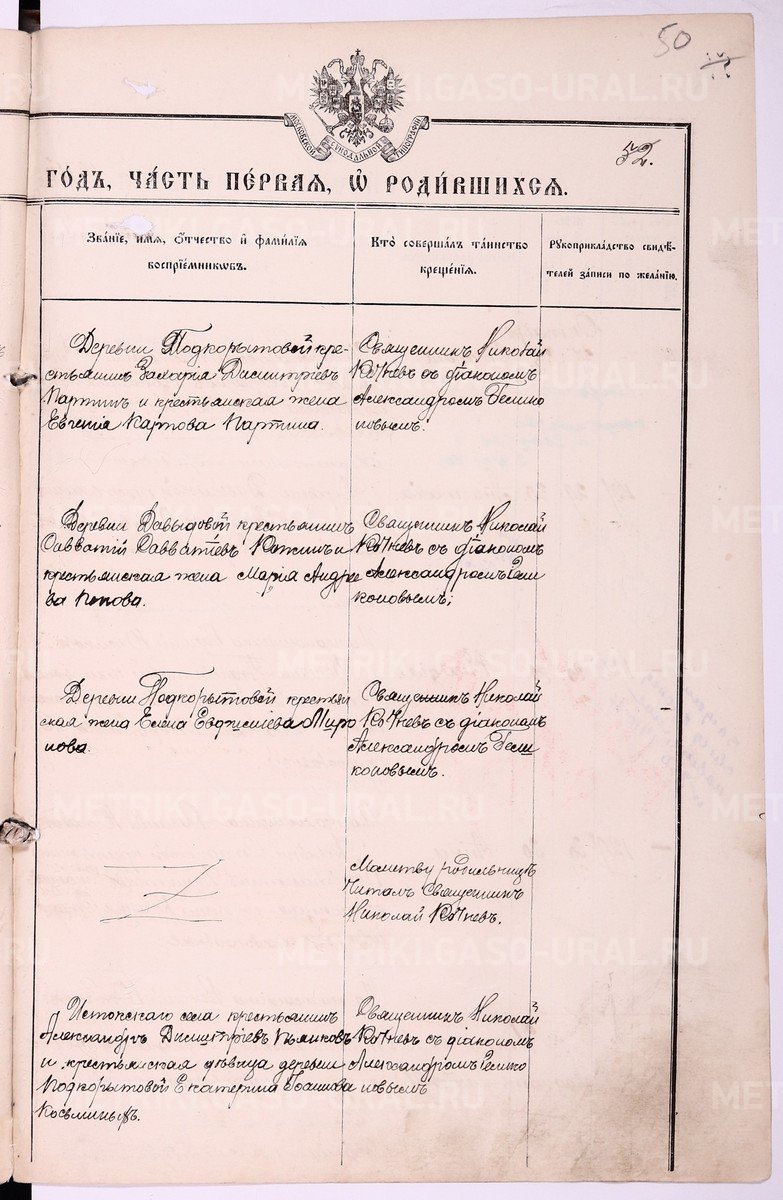 50
32.
МОСКОВСКОЙ СѴНОДАЛЬНОЙ ТИПОГРАФІИ
ГОДЪ, ЧАСТЬ ПЕРВАЯ, Ѡ РОДИВШИХСЯ.
Званіе, имя, ѻтчество и фамилія
воспріемникѡвъ.
Кто совершалъ таинство
крещенія.
Рукоприкладство свидѣ-
телей записи по желанію.
Деревни Подкорытовой кре-
стьянинъ Захарія Димитріевъ
и крестьянская жена
Евгенія Карпова
Священникъ Николай
Кочневъ съ діакономъ
Александромъ Гелико
новымъ.
Деревни Давыдовой крестьянинъ
Савватій Савватіевъ и
крестьянская жена Марія Андре
ева Попова.
Священникъ Николай
Кочневъ съ діакономъ
Александромъ Гели
коновымъ;
Деревни Подкорытовой крестьян
ская жена Елена Евдокиміева Миро
нова.
Священникъ Николай
Кочневъ съ діакономъ
Александромъ Гели
коновымъ.
Молитву родильницѣ
читалъ Священникъ
Николай Кочневъ.
Истокскаго села крестьянинъ
Александръ Димитріевъ Пьянковъ
и крестьянская дѣвица деревни
Подкорытовой Екатерина Іоаннова
Козьминыхъ.
Священникъ Николай
Кочневъ съ діакономъ
Александромъ Гелико
новымъ
METRIKI.GASO-URAL.RU